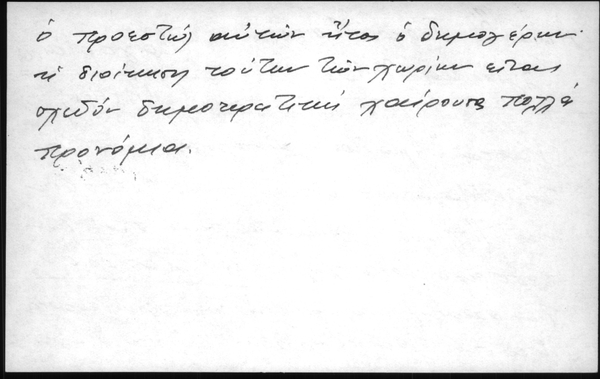 ὁ προεστώς αὐτῶν ἦτο ὁ δημογέρων.
ἡ διοίκηση τούτων τῶν χωρίων εἶναι
σχεδόν δημοκρατική χαίρουσα πολλά
προνόμια.